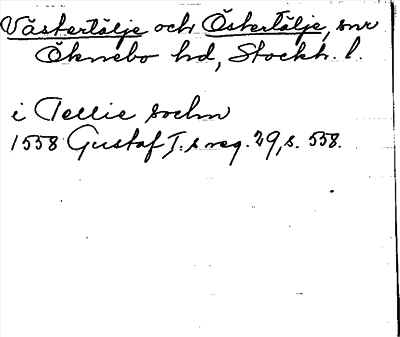 Västertälje och Östertälje, snr
Öknebo hd, Stockh. l.
i Tellie sochn
1558 Gustaf I. s reg. 29, s. 558.